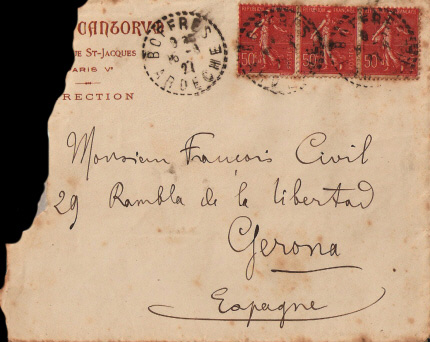 CANTORVM
ue St-Jacques
ARIS Vᵉ
RECTION
BOFFRES
ARDECHE
50ᶜ
50ᶜ
50ᶜ
Monsieur François Civil
29 Rambla de la libertad
Gerona
Espagne